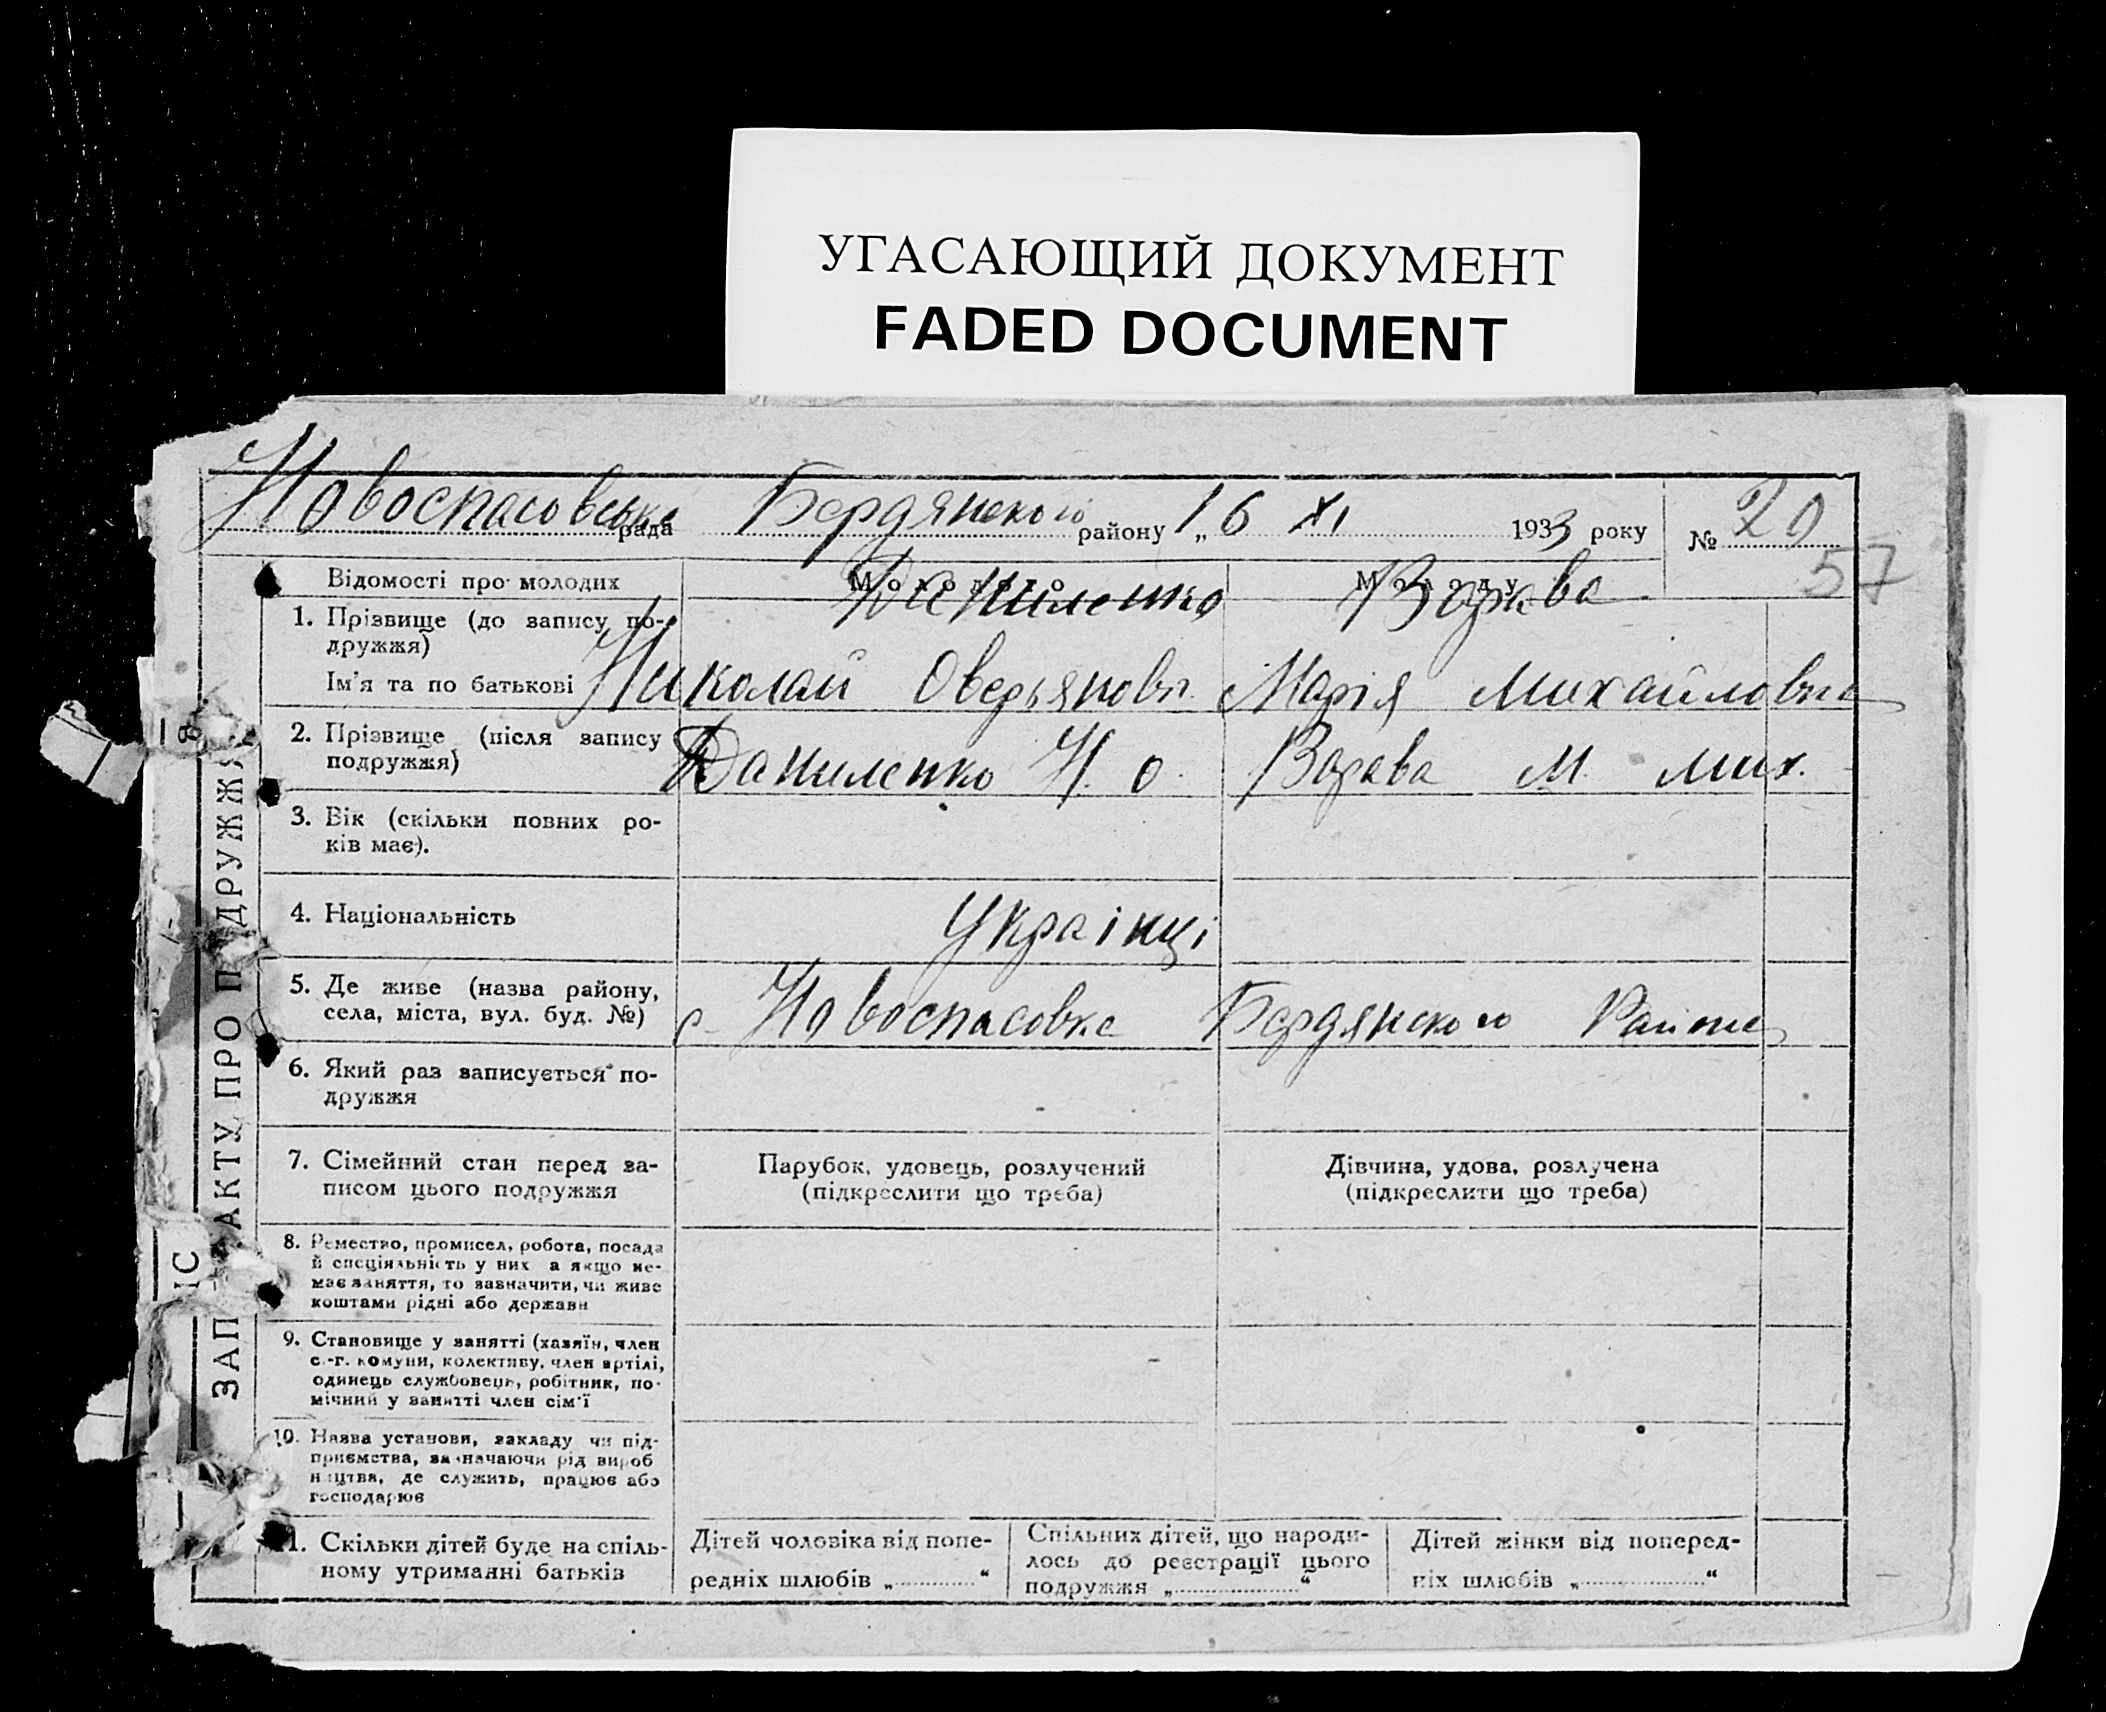 УГАСАЮЩИЙ ДОКУМЕНТ
FADED DOCUMENT
Новоспасовська рада Бердянского району „16 XI 1933 року № 20
57
ЗАПИС АКТУ ПРО ПОДРУЖЖЯ
Відомості про молодих Молодого Молоду
1. Прізвище (до запису по- Даниленко
дружжя)
Ім'я та по батькові Николай Оверьянови. Марія Михайловна
2. Прізвище (після запису
подружжя) Даниленко Н. О. М. Мих.
3. Вік (скільки повних ро-
ків має).
4. Національність Українці
5. Де живе (назва району,
села, міста, вул. буд. №) с. Новоспасовка Бердянского Района
6. Який раз записується по-
дружжя
7. Сімейний стан перед за- Парубок, удовець, розлучений Дівчина, удова, розлучена
писом цього подружжя (підкреслити що треба) (підкреслити що треба)
8. Ремество, промисел, робота, посада
й спеціяльність у них а якщо не-
має заняття, то зазначити, чи живе
коштами рідні або держави
9. Становище у занятті (хазяїн, член
с.-г. комуни, колективу, член артілі,
одинець службовець, робітник, по-
мічний у занятті член сім'ї
10. Назва установи, закладу чи під-
приємства, зазначаючи рід вироб
ництва, де служить, працює або
господарює
11. Скільки дітей буде на спіль- Дітей чоловіка від попе- Спільних дітей, що народи- Дітей жінки від поперед-
ному утриманні батьків редніх шлюбів „ “ лось до реєстрації цього ніх шлюбів „ “
подружжя „ “